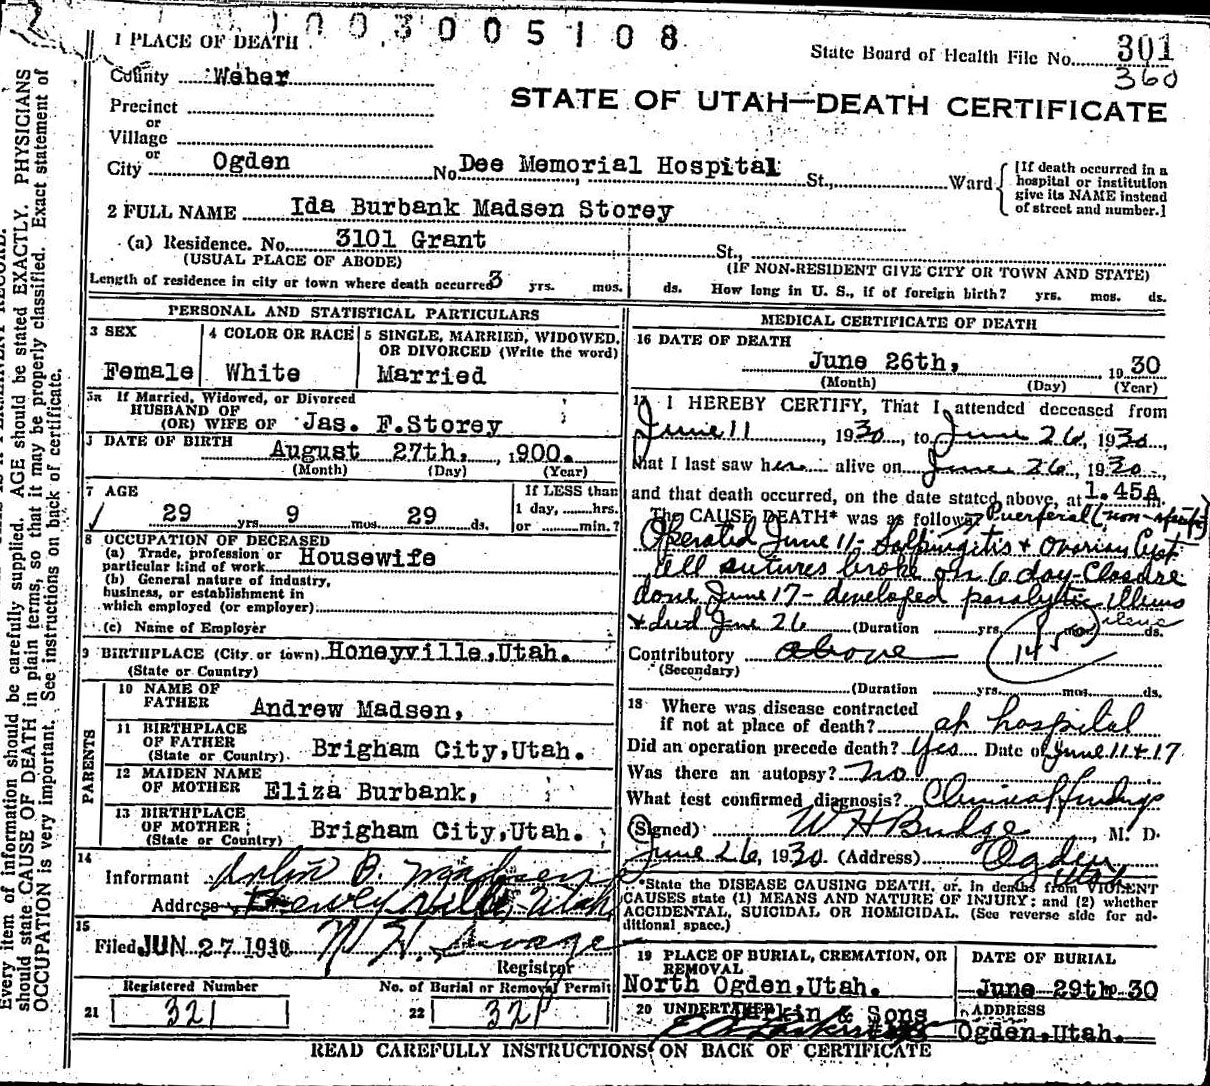 1003005108
1 PLACE OF DEATH
State Board of Health File No. 301
360
County Weber
STATE OF UTAH—DEATH CERTIFICATE
Precinct
or
Village
or
City Ogden No. Dee Memorial Hospital St., Ward
[If death occurred in a
hospital or institution
give its NAME instead
of street and number.]
2 FULL NAME Ida Burbank Madsen Storey
(a) Residence. No. 3101 Grant St.,
(USUAL PLACE OF ABODE) (IF NON-RESIDENT GIVE CITY OR TOWN AND STATE)
Length of residence in city or town where death occurred 3 yrs. mos. ds. How long in U. S., if of foreign birth? yrs. mos. ds.
PERSONAL AND STATISTICAL PARTICULARS
3 SEX
Female
4 COLOR OR RACE
White
5 SINGLE, MARRIED, WIDOWED,
OR DIVORCED (Write the word)
Married
5a If Married, Widowed, or Divorced
HUSBAND OF
(OR) WIFE OF Jas. F.Storey
DATE OF BIRTH
August 27th, 1900.
(Month) (Day) (Year)
7 AGE
29 yrs. 9 mos. 29 ds.
If LESS than
1 day, hrs.
or min.?
8 OCCUPATION OF DECEASED
(a) Trade, profession or
particular kind of work Housewife
(b) General nature of industry,
business, or establishment in
which employed (or employer)
(c) Name of Employer
9 BIRTHPLACE (City or town) Honeyville,Utah.
(State or Country)
PARENTS
10 NAME OF
FATHER Andrew Madsen,
11 BIRTHPLACE
OF FATHER
(State or Country) Brigham City,Utah.
12 MAIDEN NAME
OF MOTHER Eliza Burbank,
13 BIRTHPLACE
OF MOTHER
(State or Country) Brigham City,Utah.
14
Informant B. Madsen
Address Deweyville, Utah
15
Filed JUN 27 1930 Savage
Registrar
Registered Number
21 321
No. of Burial or Removal Permit
22 321
MEDICAL CERTIFICATE OF DEATH
16 DATE OF DEATH
June 26th, 1930
(Month) (Day) (Year)
17 I HEREBY CERTIFY, That I attended deceased from
June 11, 1930, to June 26, 1930,
that I last saw her alive on June 26, 1930,
and that death occurred, on the date stated above, at 1.45A.
The CAUSE DEATH* was as follows: Puerperal (non-specific)
Operated June 11- Salpingitis & Ovarian Cyst
all sutures broke on 6 day-Closure
done June 17- developed paralytic illeus
ileus
& died June 26 (Duration yrs. mos. ds.
Contributory above 145
(Secondary)
(Duration yrs. mos. ds.
18 Where was disease contracted
if not at place of death? at hospital
Did an operation precede death? Yes Date of June 11 & 17
Was there an autopsy? no
What test confirmed diagnosis? Clinical findings
(Signed) W H Budge, M. D.
June 26, 1930 (Address) Ogden,
Utah
*State the DISEASE CAUSING DEATH, or, in deaths from VIOLENT
CAUSES state (1) MEANS AND NATURE OF INJURY; and (2) whether
ACCIDENTAL, SUICIDAL OR HOMICIDAL. (See reverse side for ad-
ditional space.)
19 PLACE OF BURIAL, CREMATION, OR
REMOVAL
North Ogden,Utah.
DATE OF BURIAL
June 29th 30
20 UNDERTAKER Larkin & Sons
ADDRESS
Ogden,Utah.
READ CAREFULLY INSTRUCTIONS ON BACK OF CERTIFICATE
Every item of information should be carefully supplied. AGE should be stated EXACTLY. PHYSICIANS
should state CAUSE OF DEATH in plain terms, so that it may be properly classified. Exact statement of
OCCUPATION is very important. See instructions on back of certificate.